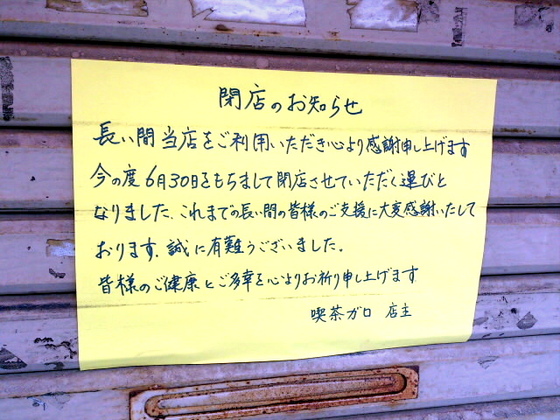 閉店のお知らせ
長い間当店をご利用いただき心より感謝申し上げます
今の度6月30日をもちまして閉店させていただく運びと
なりました。これまでの長い間の皆様のご支援に大変感謝いたして
おります。誠に有難うございました。
皆様のご健康とご多幸を心よりお祈り申し上げます
喫茶ガロ 店主